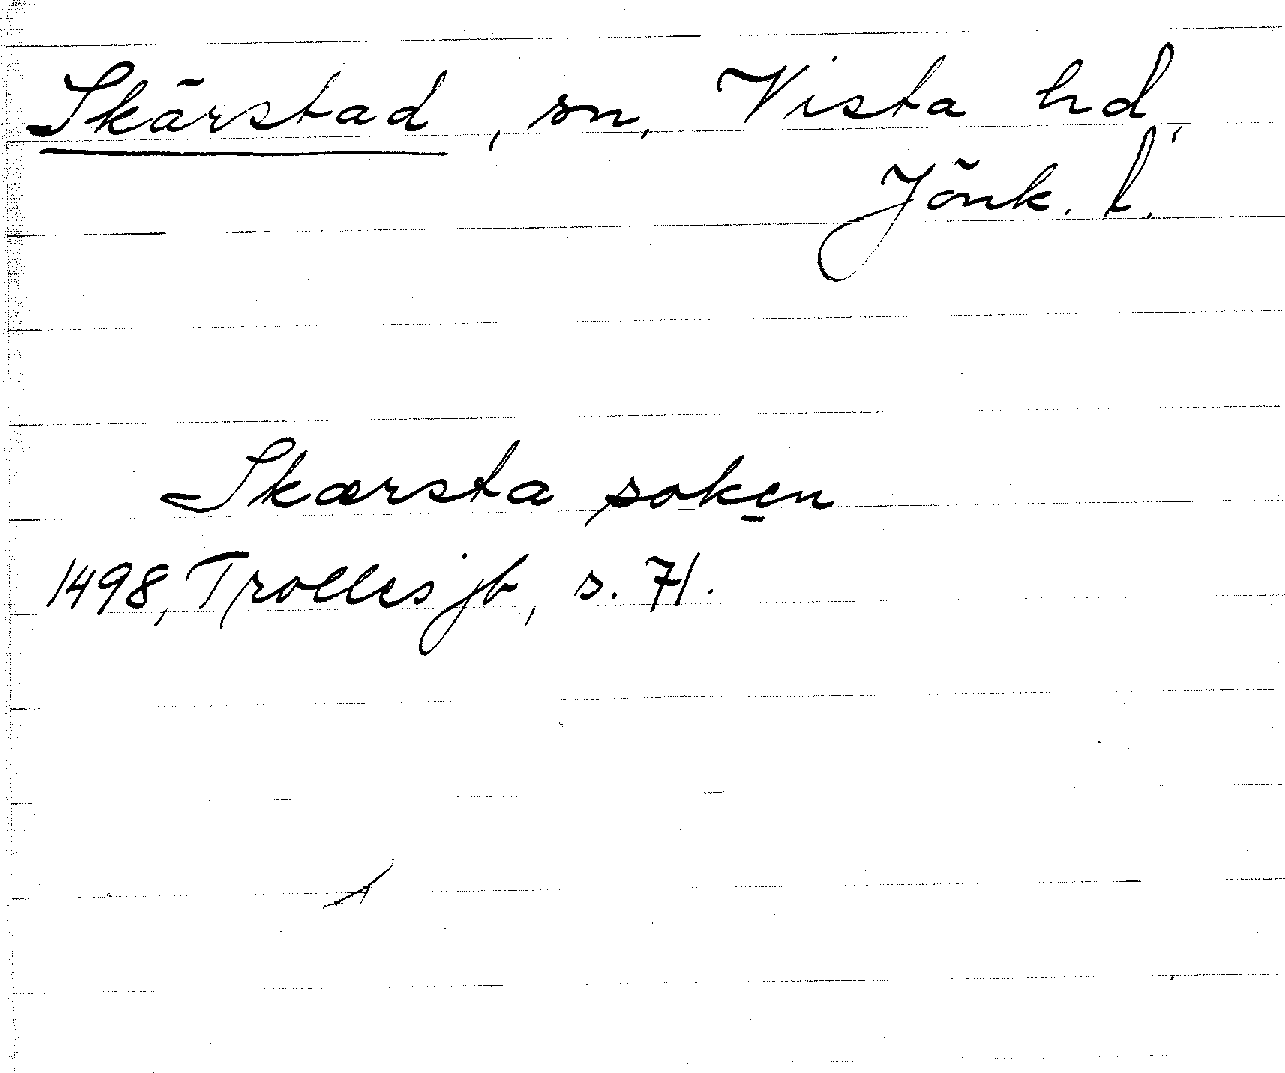 Skärstad, sn, Vista hd,
Jönk. l.
Skærsta soken
1498, Trolles jb, s. 71.